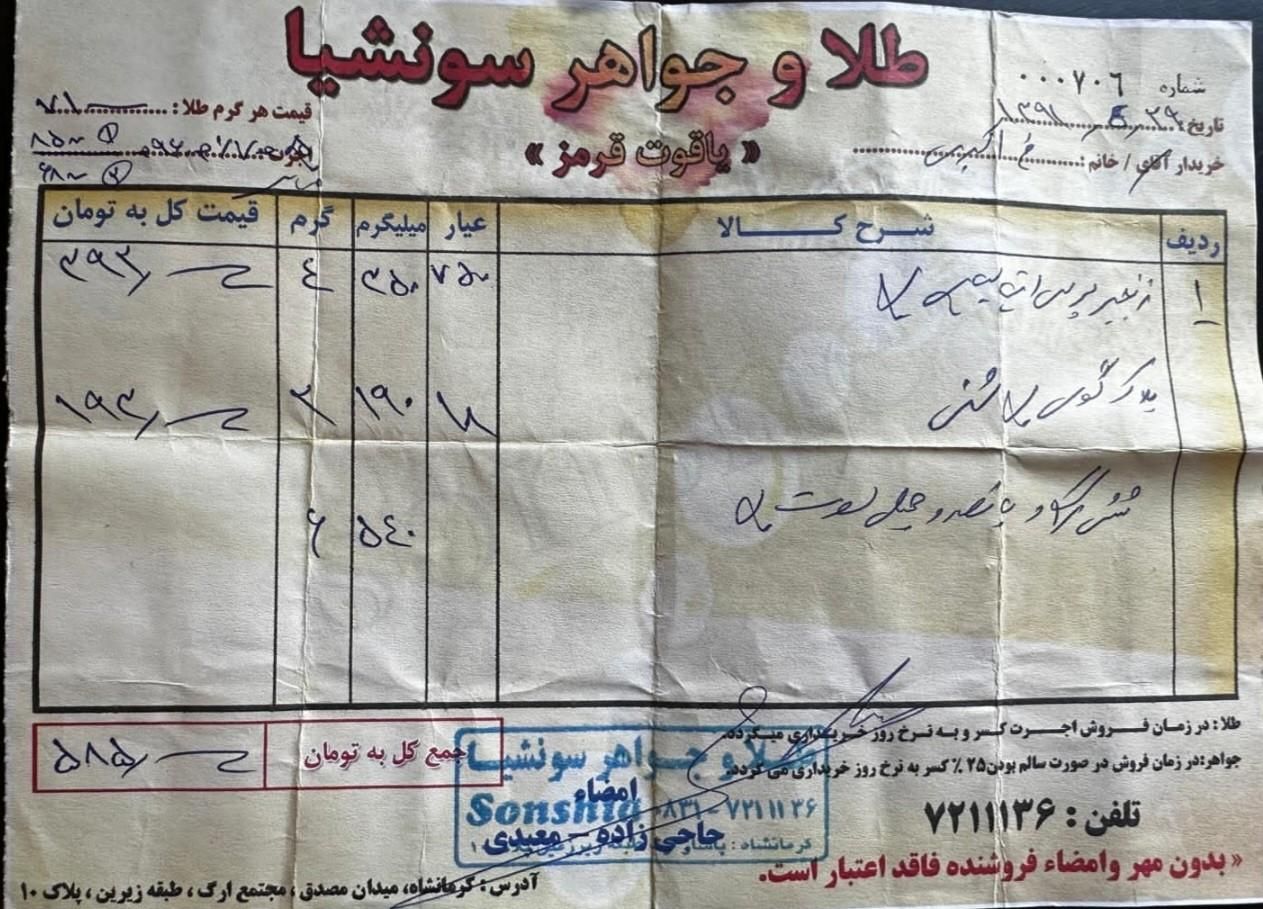 طلا و جواهر سونشیا
« یاقوت قرمز »
شماره ۰۰۰۷۰۶
تاریخ: ۱۳۹۱/۶/۲۹
خریدار آقای / خانم :
قیمت هر گرم طلا :
ردیف شرح کالا عیار میلیگرم گرم قیمت کل به تومان
۱ زنجیر ۷۵۰ ۳۵۰ ٤ ۳۹۲/
پلاک ۱۹۰ ۲ ۱۹۳/
شش گرم و پانصد و چهل سوت ۵٤۰ ۶
جمع کل به تومان ۵۸۵/
طلا : در زمان فروش اجرت کسر و به نرخ روز خریداری میگردد.
جواهر:در زمان فروش در صورت سالم بودن ۲۵ ٪ کسر به نرخ روز خریداری می گردد.
طلا و جواهر سونشیا
Sonshia ۰۸۳۱ - ۷۲۱۱۱۳۶
امضاء
حاجی زاده - معبدی
تلفن : ۷۲۱۱۱۳۶
« بدون مهر وامضاء فروشنده فاقد اعتبار است.
آدرس : کرمانشاه، میدان مصدق ، مجتمع ارگ ، طبقه زیرین ، پلاک ۱۰